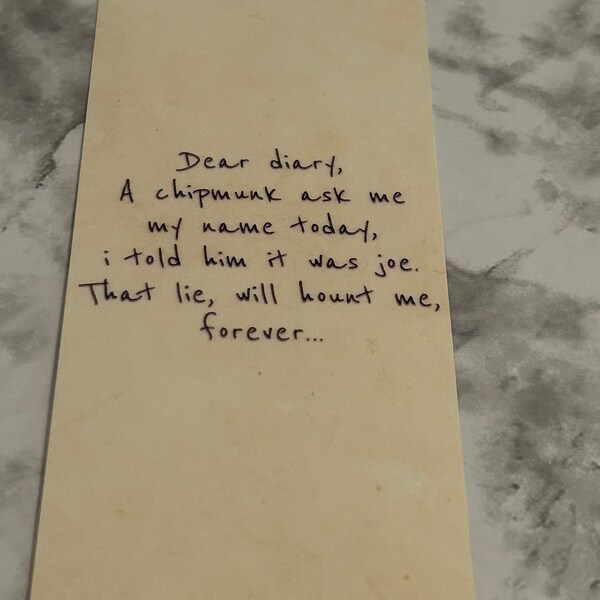 Dear diary,
A chipmunk ask me
my name today,
i told him it was joe.
That lie, will hount me,
forever...